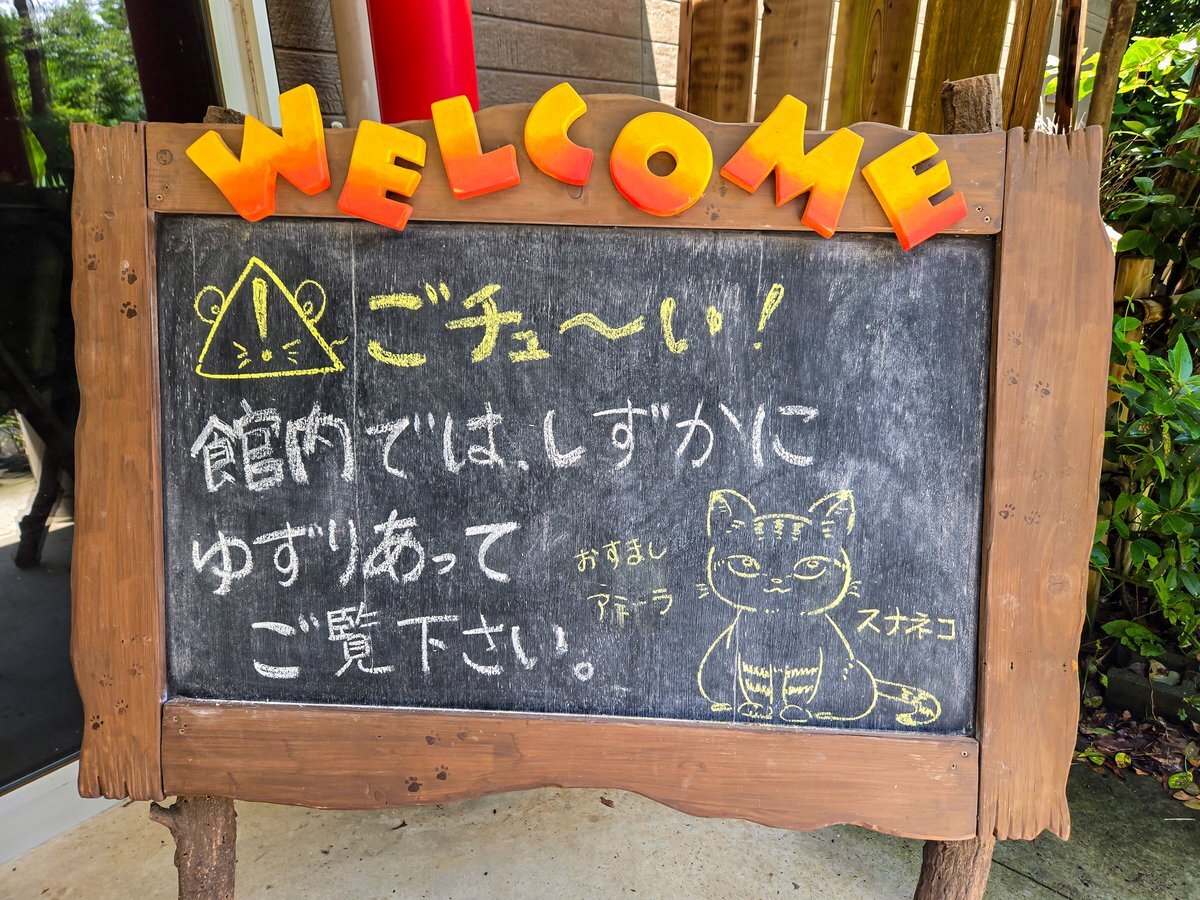 WELCOME
! ごチュ〜い!
館内では、しずかに
ゆずりあって
ご覧下さい。
おすまし
アミーラ
スナネコ